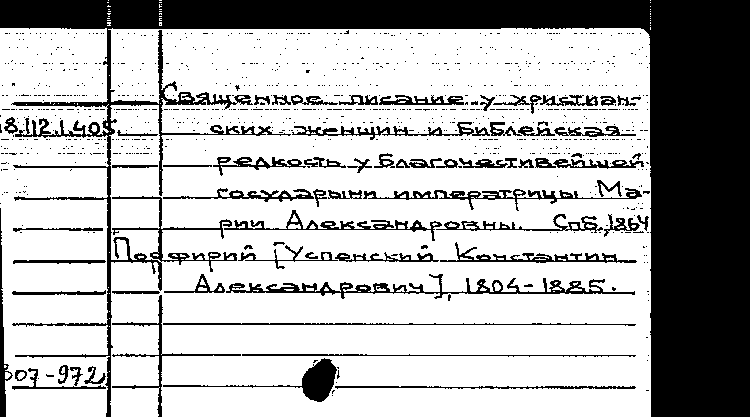 Священное писание у христиан-
18.112.1.405. ских женщин и Библейская
редкость у благочестивейшей
государыни императрицы Ма-
рии Александровны. Спб., 1864
Порфирий [Успенский Константин
Александрович], 1804-1885.
307-972